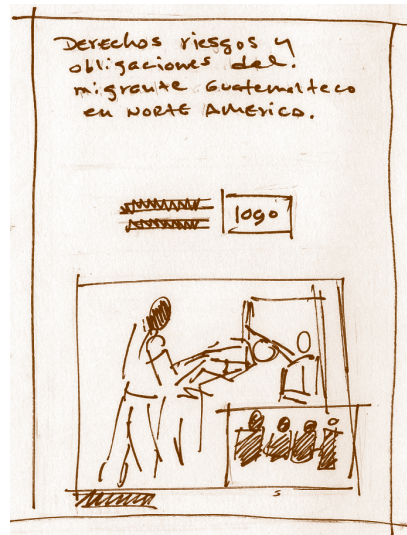 Derechos riesgos y
obligaciones del.
migrante Guatemalteco
en NORTE AMERICA.
logo
s